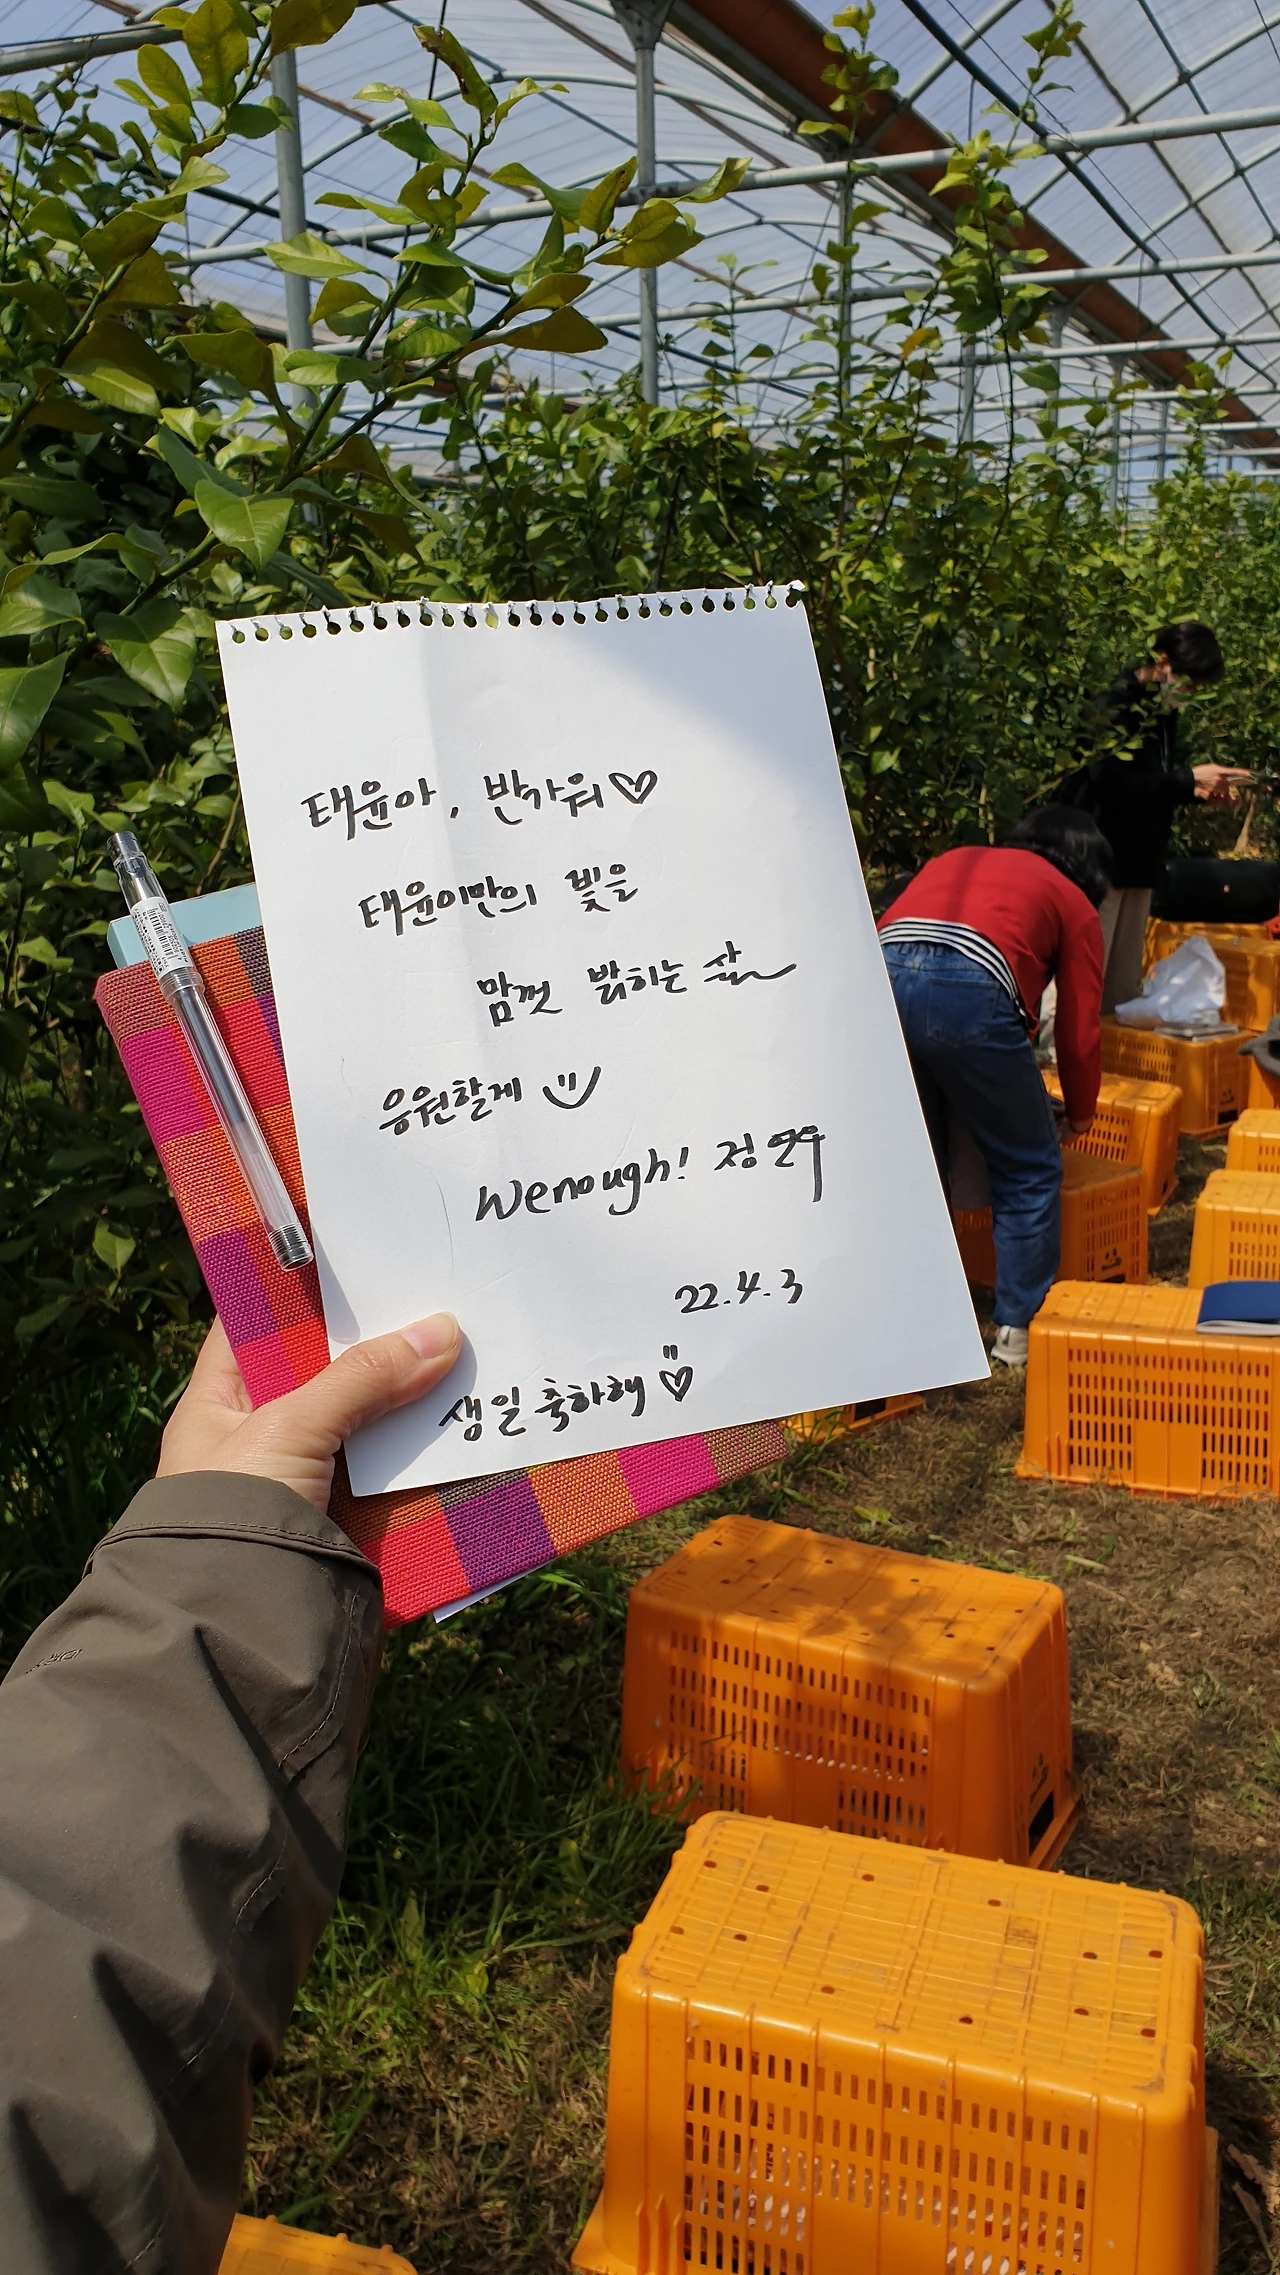 태윤아, 반가워♡
태윤이만의 빛을
맘껏 밝히는 삶~
응원할게
Wenough! 정연우
22.4.3
생일 축하해 ♡